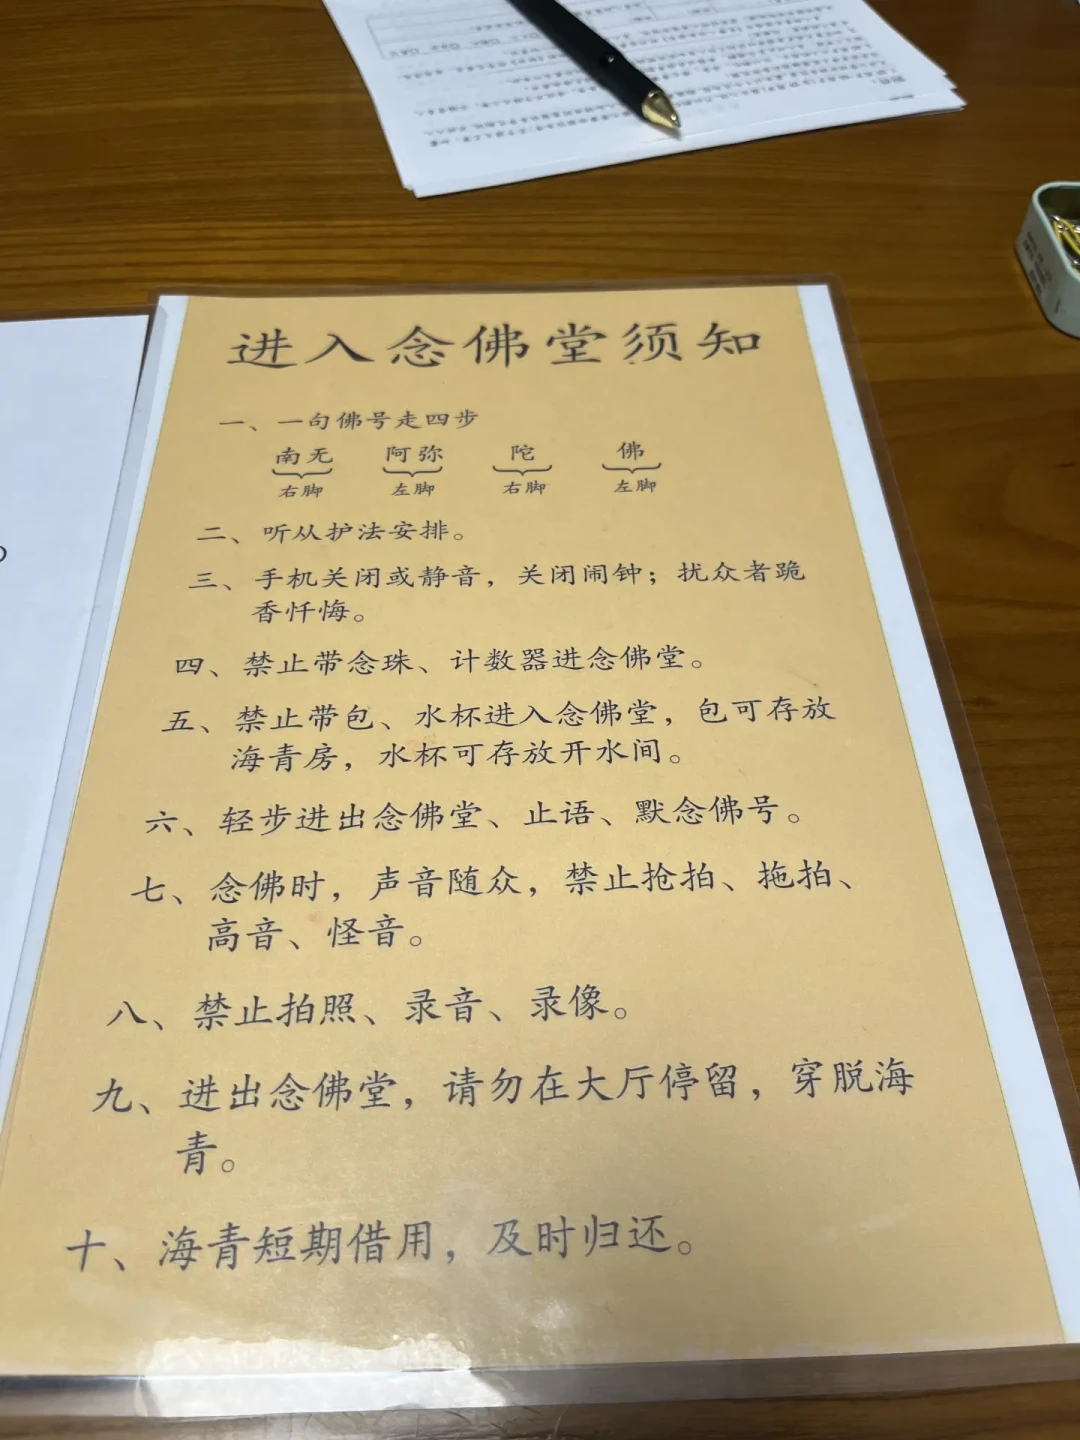 进入念佛堂须知
一、一句佛号走四步
南无 阿弥 陀 佛
右脚 左脚 右脚 左脚
二、听从护法安排。
三、手机关闭或静音，关闭闹钟；扰众者跪
香忏悔。
四、禁止带念珠、计数器进念佛堂。
五、禁止带包、水杯进入念佛堂，包可存放
海青房，水杯可存放开水间。
六、轻步进出念佛堂、止语、默念佛号。
七、念佛时，声音随众，禁止抢拍、拖拍、
高音、怪音。
八、禁止拍照、录音、录像。
九、进出念佛堂，请勿在大厅停留，穿脱海
青。
十、海青短期借用，及时归还。